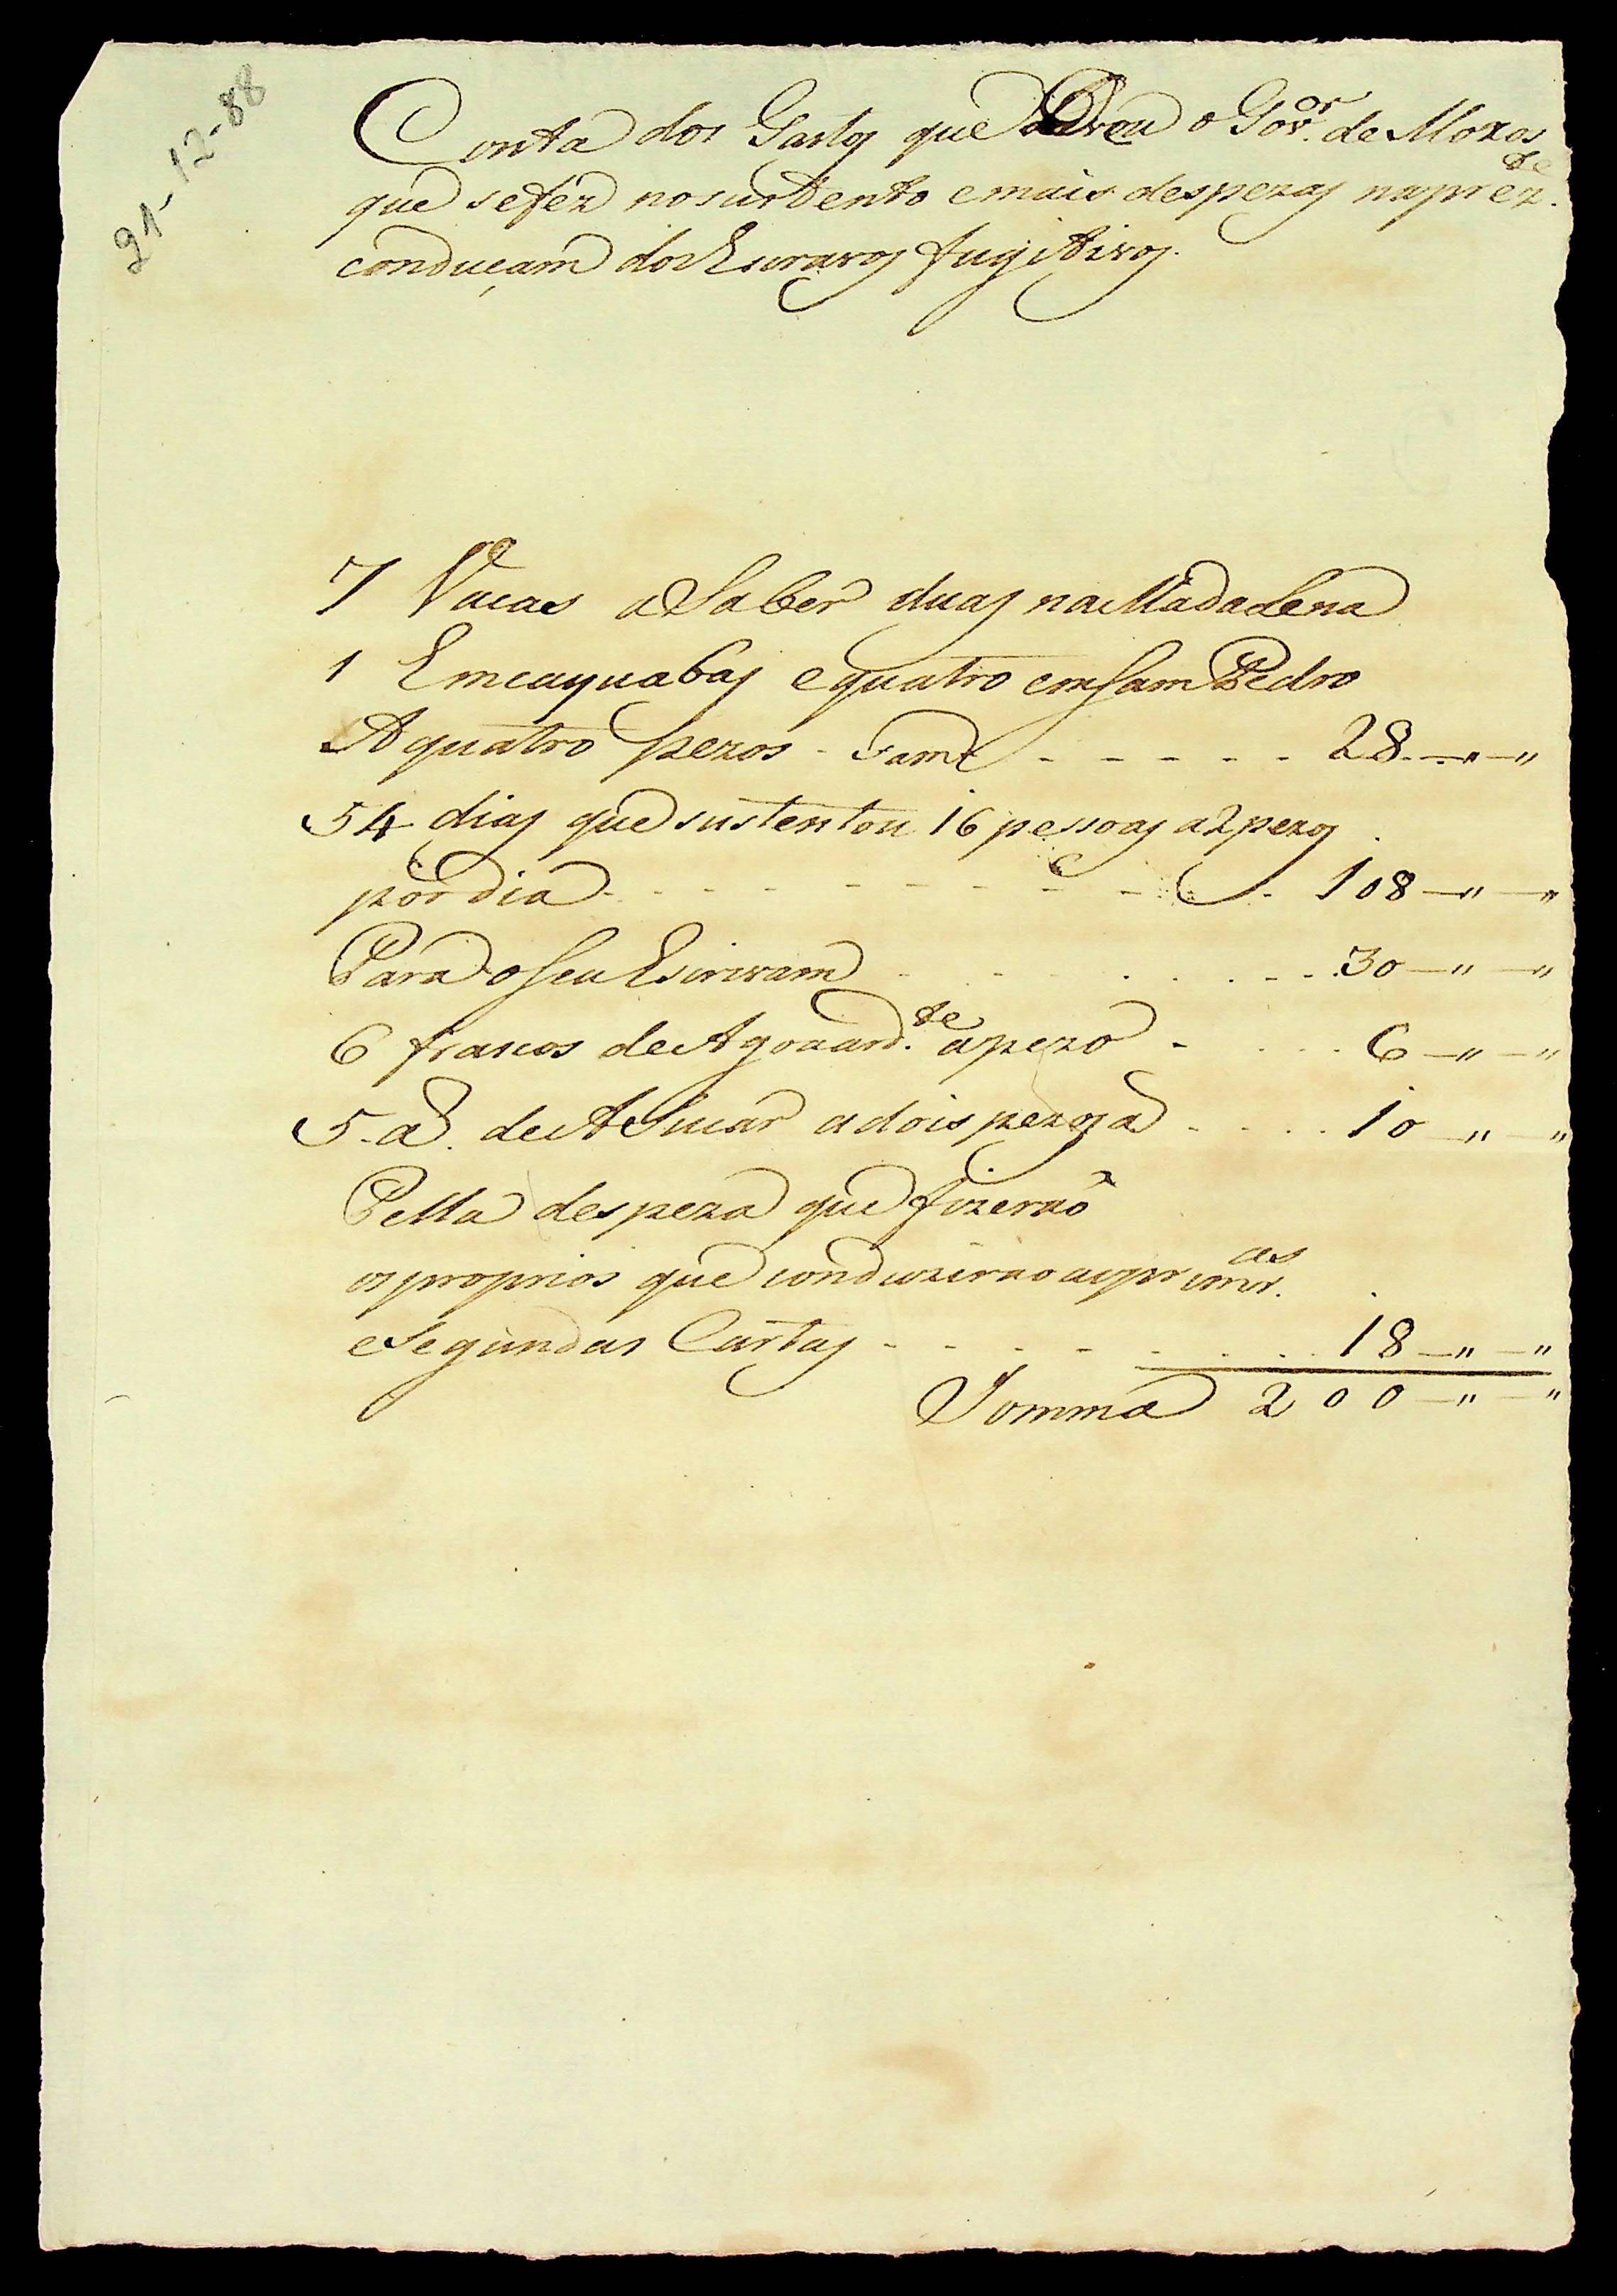 21-12-88
Conta dos Gastos que o Gov.or de Moxos
que sefez no sustento e mais despezas na prez.te
conduçam dos Escravos fugitivos.
7 Vacas a Saber duas na Madalena
1 Em e quatro em Sam Pedro
A quatro pezos - Sam - - - - - 28 -"-"
54 dias que sustentou 16 pessoas a 2 pezos
por dia - - - - - - - - - - 108 -"-"
Para o seu Escrivam - - - - - - 30 -"-"
6 frascos de Agoaard.te a pezo - - - - 6 -"-"
5 @. de Asucar a dois pezos @ - - - - 10 -"-"
Pella despeza que fizerão
os proprios que conduzirão as prim.as
e Segundas Cartas - - - - - - - 18 -"-"
Somma 200 -"-"